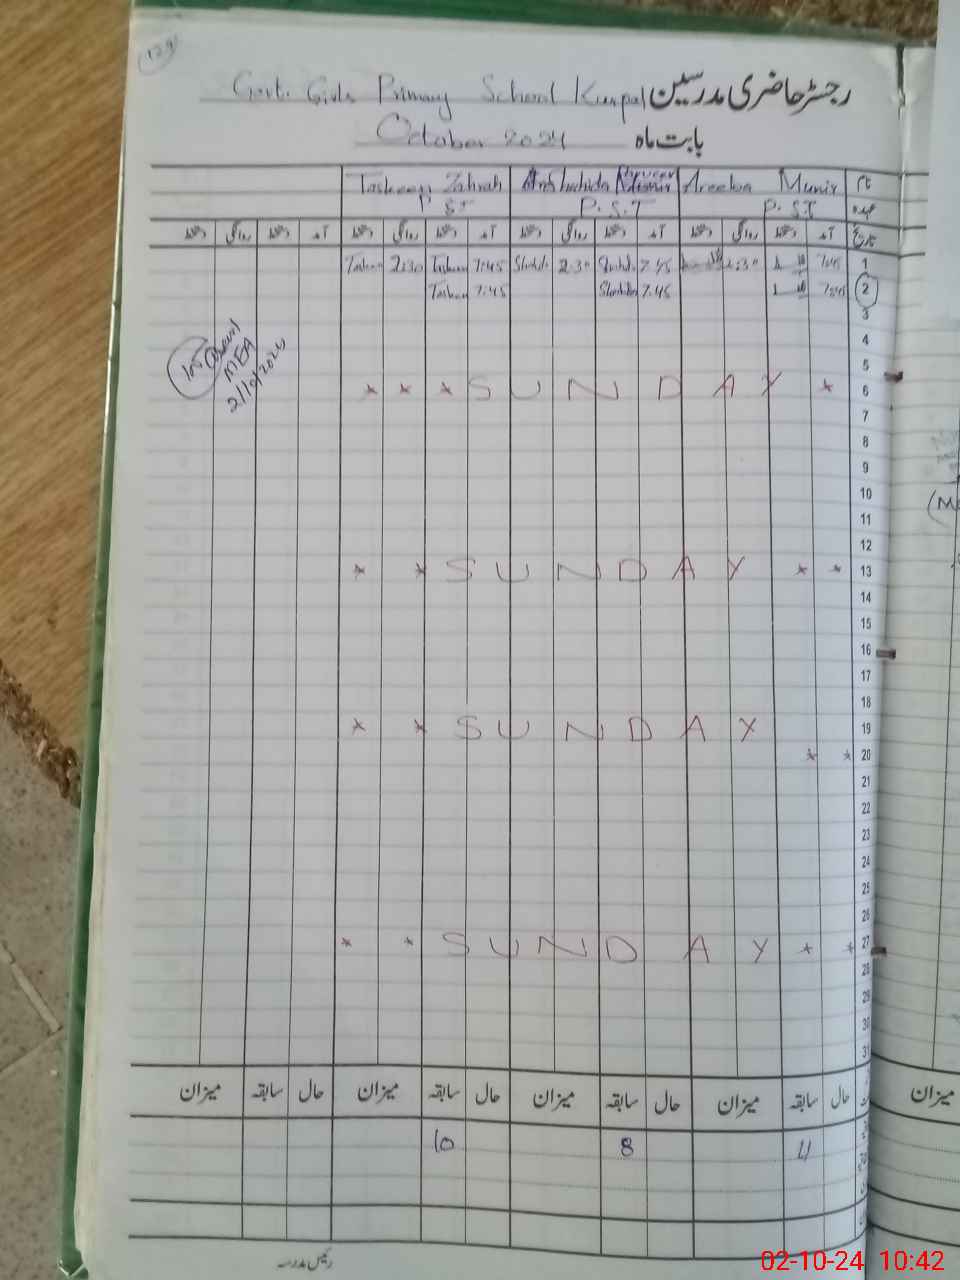 129
Govt. Girls Primary School Kunpal رجسٹر حاضری مدرسین
October 2024 بابت ماہ
Taskeen Zahrah Shahida Areeba Munir نام
P.S.T P.S.T P.S.T عہدہ
دستخط روانگی دستخط آمد دستخط روانگی دستخط آمد دستخط روانگی دستخط آمد دستخط روانگی دستخط آمد تاریخ
Taskeen 2:30 Taskeen 7:45 Shahida 2:30 Shahida 7:45 2:30 7:45 1
Taskeen 7:45 Shahida 7:45 7:45 2
3
4
MEA
2/10/2024
5
* * * SUNDAY * 6
7
8
9
10
11
12
* * SUNDAY * * 13
14
15
16
17
18
* * SUNDAY 19
* * 20
21
22
23
24
25
26
* * SUNDAY * * 27
28
29
30
31
میزان سابقہ حال میزان سابقہ حال میزان سابقہ حال میزان سابقہ حال
10 8 11
رئیس مدرسہ
میزان
02-10-24 10:42